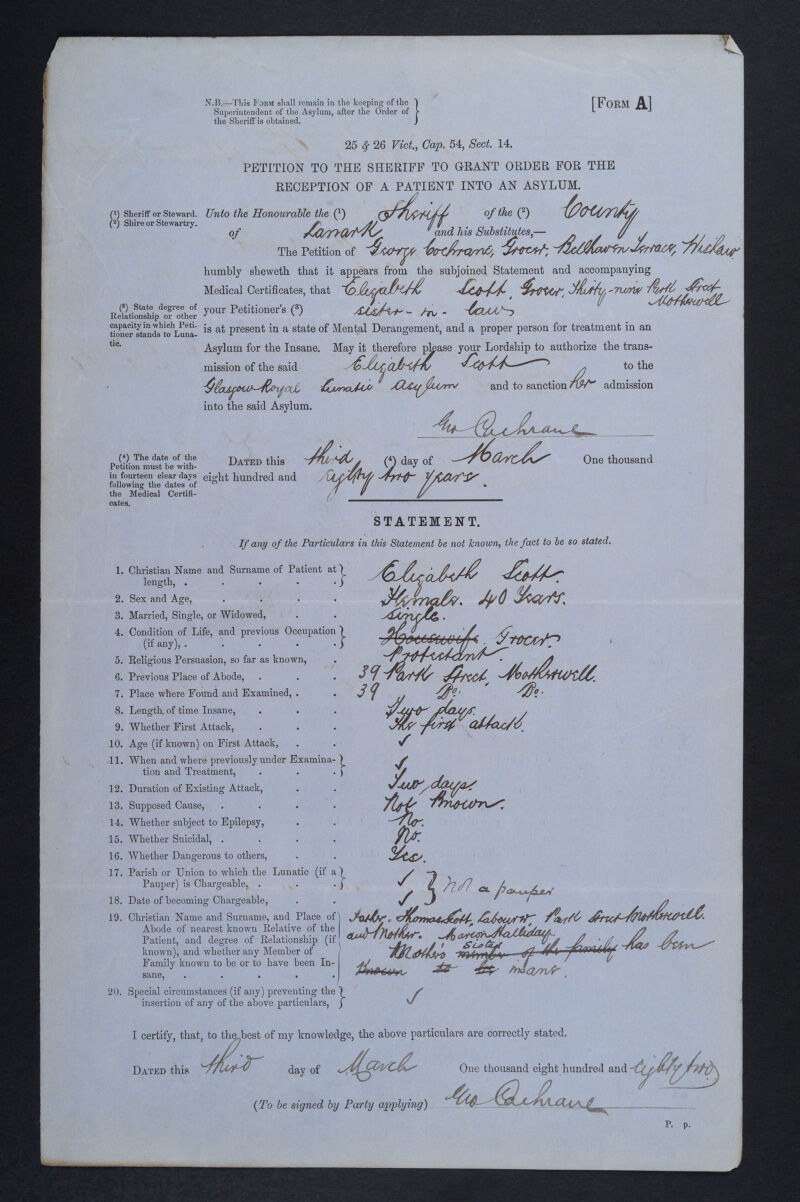 N.B.—This FORM shall remain in the keeping of the
Superintendent of the Asylum, after the Order of
the Sheriff is obtained.
[FORM A]
25 & 26 Vict., Cap. 54, Sect. 14.
PETITION TO THE SHERIFF TO GRANT ORDER FOR THE
RECEPTION OF A PATIENT INTO AN ASYLUM.
(1) Sheriff or Steward.
(2) Shire or Stewartry.
Unto the Honourable the (1) Sheriff of the (2) County
of Lanark and his Substitutes,—
The Petition of George Cochrane, Grocer, Bellhaven Terrace, Wishaw
humbly sheweth that it appears from the subjoined Statement and accompanying
Medical Certificates, that Elizabeth Scott, Grocer, Thirty-nine Park Street Motherwell
(3) State degree of
Relationship or other
capacity in which Peti-
tioner stands to Luna-
tic.
your Petitioner's (3) sister-in-law
is at present in a state of Mental Derangement, and a proper person for treatment in an
Asylum for the Insane. May it therefore please your Lordship to authorize the trans-
mission of the said Elizabeth Scott to the
Glasgow Royal Lunatic Asylum and to sanction her admission
into the said Asylum.
Geo Cochrane
(4) The date of the
Petition must be with-
in fourteen clear days
following the dates of
the Medical Certifi-
cates.
DATED this third (4) day of March One thousand
eight hundred and eighty two years.
STATEMENT.
If any of the Particulars in this Statement be not known, the fact to be so stated.
1. Christian Name and Surname of Patient at
length, . . . . . Elizabeth Scott.
2. Sex and Age, . . . . Female. 40 Years.
3. Married, Single, or Widowed, . . Single.
4. Condition of Life, and previous Occupation
(if any), . . . . . Housewife. Grocer
5. Religious Persuasion, so far as known, . Protestant.
6. Previous Place of Abode, . . . 39 Park Street, Motherwell.
7. Place where Found and Examined, . . 39 Do. Do.
8. Length of time Insane, . . . Two days.
9. Whether First Attack, . . . The first attack.
10. Age (if known) on First Attack, . . ✓
11. When and where previously under Examina-
tion and Treatment, . . . ✓
12. Duration of Existing Attack, . . Two days.
13. Supposed Cause, . . . . Not Known.
14. Whether subject to Epilepsy, . . No.
15. Whether Suicidal, . . . . No.
16. Whether Dangerous to others, . . Yes.
17. Parish or Union to which the Lunatic (if a
Pauper) is Chargeable, . . . ✓
18. Date of becoming Chargeable, . . ✓
Not a pauper
19. Christian Name and Surname, and Place of
Abode of nearest known Relative of the
Patient, and degree of Relationship (if
known), and whether any Member of
Family known to be or to have been In-
sane, . . . . .
Father. Thomas Scott, Labourer Park Street Motherwell.
and Mother. Marion Halliday
Mother's member of the family sister has been
known to be insane.
20. Special circumstances (if any) preventing the
insertion of any of the above particulars, ✓
I certify, that, to the best of my knowledge, the above particulars are correctly stated.
DATED this third day of March One thousand eight hundred and eighty two
(To be signed by Party applying) Geo Cochrane
P. p.